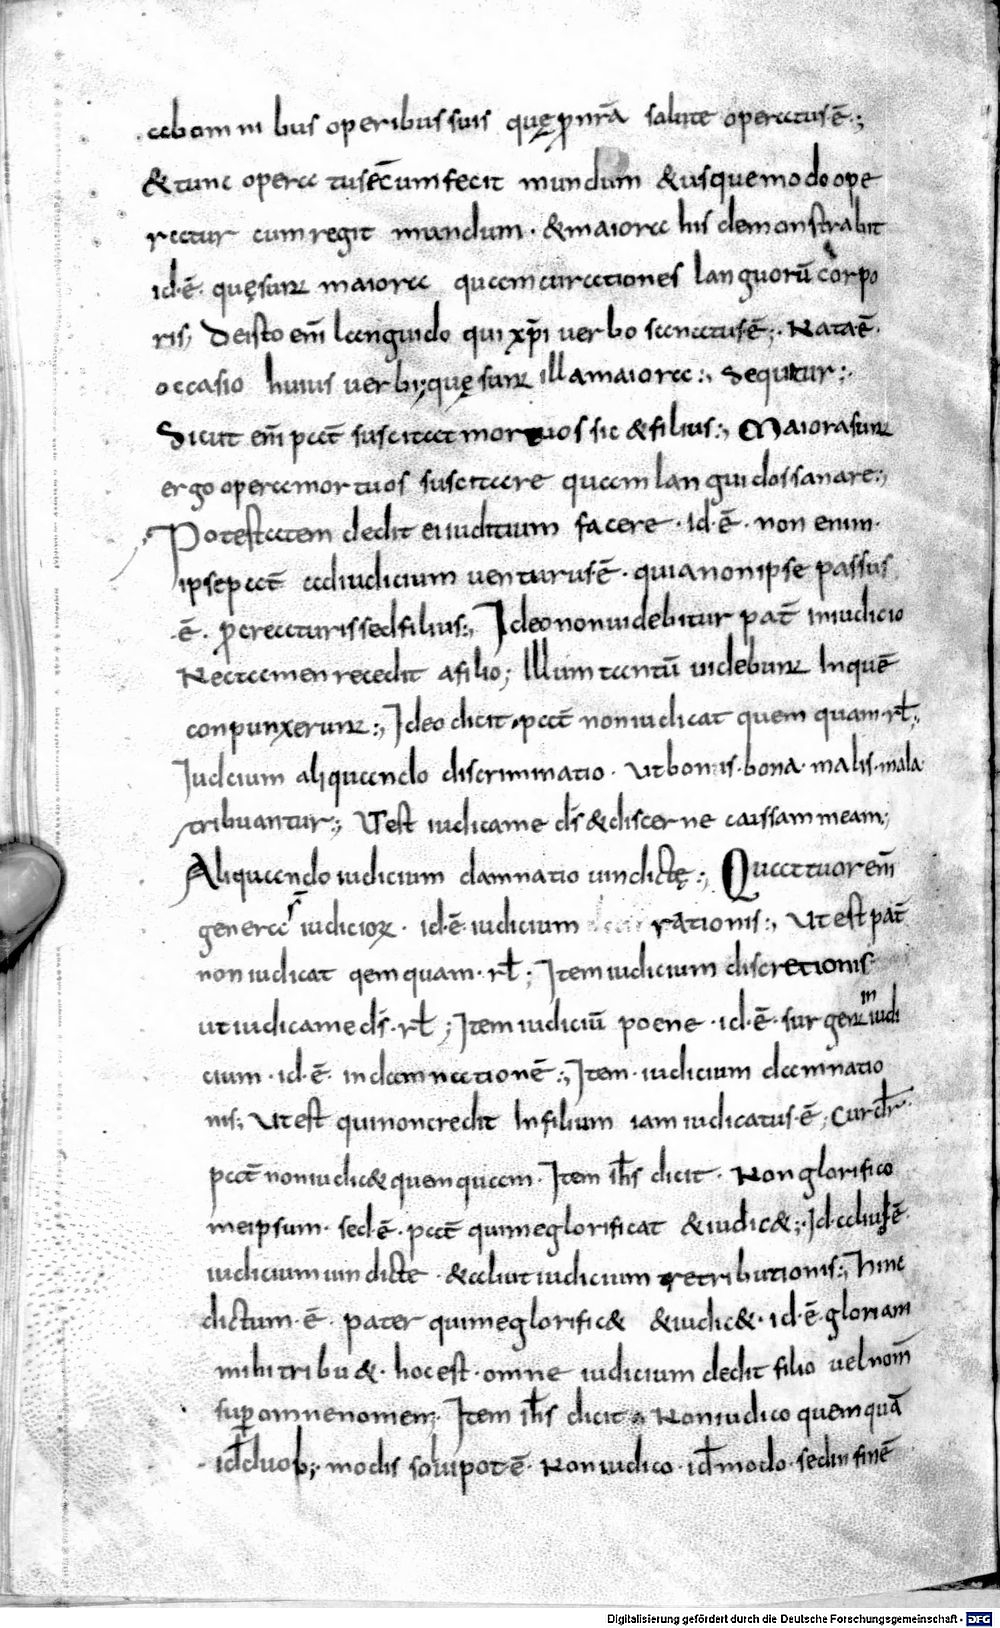 abomni bus operibus suis quę p nrā salute operatus ē.;
& tunc opera tus ē cum fecit mundum & usque modo ope
ratur cum regit mundum · & maiora his demonstrabit
id·ē· quę sunt maiora quam curationes languorū corpo
ris; De isto em̄ languido qui xp̄i verbo sanatus ē;· Nata ē·
occasio huius verbi; quę sunt illa maiora:, Sequitur;·
Sicut em̄ pat̄ suscitat mortuos sic & filius:, Maiora sunt
ergo opera mortuos suscitare quam languidos sanare:,
Potestatem dedit ei iuditium facere · id·ē· non enim·
ipse pat̄ ad iudicium venturus ē · quia non ipse passus
·ē· p creaturis sed filius:, Ideo non videbitur pat̄ in iudicio
Nec tamen recedit a filio; Illum tantū videbunt In quē
conpunxerunt:, Ideo dicit · pat̄ non iudicat quem quam·rł;,
Iudcium aliquando discriminatio · Ut bonis·bona·malis·mala·
tribuantur:, Ut est iudica me d̄s & discerne caussam meam;
Aliquando iudicium damnatio vindictę:, Quattuor em̄
genera s̄ iudiciorum · id·ē· iudicium rationis:, Ut est pat̄
non iudicat qem quam·rł; Item iudicium discretionis
ut iudica me d̄s·rł; Item iudiciū poene · id·ē· surgent in iudi
cium · id·ē· in damnationē:, Item · iudicium damnatio
nis; Ut est qui non credit In filium iam iudicatus·ē; Cur dr̄
pat̄ non iudic& quem quam · Item ih̄s dicit · Non glorifico
me ipsum · sed·ē· pat̄ qui me glorificat & iudic&;· Id·aliud ē·
iudicium vindicte · & aliut iudicium retributionis:, Hinc
dictum·ē· pater qui me glorific& & iudic&· id·ē· gloriam
mihi tribu& · hoc est · omne iudicium dedit filio vel nom̄
sup omne nomen; Item ih̄s dicit · Non iudico quem quā
id̄ duob;· modis solui pot·ē· Non iudico · id̄ modo · sed in finē
Digitalisierung gefördert durch die Deutsche Forschungsgemeinschaft - DFG